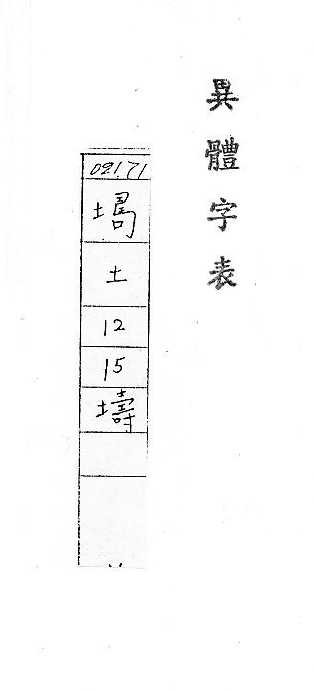 異體字表
02171
土
12
15
壔